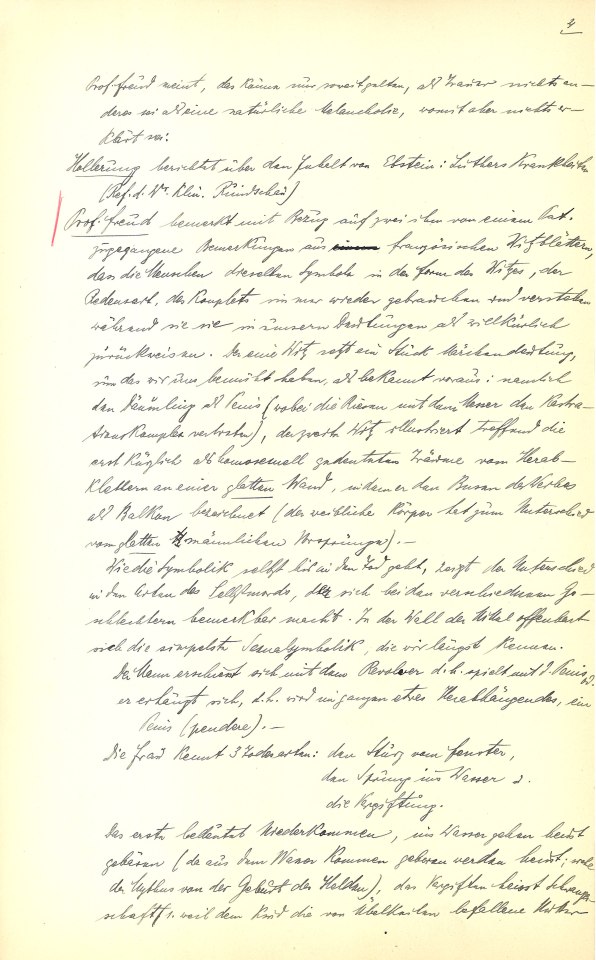 4
Prof. Freud meint, das könne nur soweit gelten, als Trauer nichts an-
deres sei als eine natürliche Melancholie, womit aber nichts er-
klärt sei.
Hollerung berichtet über den Inhalt von Ebstein: Luthers Krankheiten
(Ref. d. Wr. klin. Rundschau)
Prof. Freud bemerkt mit Bezug auf zwei ihm von einem
zugegangene Bemerkungen aus französischen Witzblättern,
dass die Menschen dieselben Symbole in der Form des Witzes, der
Redensart, des Kouplets immer wieder gebrauchen und verstehen
während sie sie in unsern Deutungen als willkürlich
zurückweisen. Der eine Witz setzt ein Stück Märchendeutung,
um das wir uns bemüht haben, als bekannt voraus: nämlich
den Däumling als Penis (wobei die Riesen mit dem Messer den Kastra-
tionskomplex vertreten), der zweite Witz illustriert treffend die
erst kürzlich als homosexuell gedeuteten Träume vom Herab-
klettern an einer glatten Wand, indem er den Busen des Weibes
als Balkon bezeichnet (der weibliche Körper hat zum Unterschied
vom glatten männlichen Vorsprünge). —
Wie die Symbolik selbst bis in den Tod geht, zeigt der Unterschied
in den Arten des Selbstmords, der sich bei den verschiedenen Ge-
schlechtern bemerkbar macht. In der Wahl der Mittel offenbart
sich die simpelste Sexualsymbolik, die wir längst kennen.
Der Mann erschiesst sich mit dem Revolver d.h. spielt mit d. Penis od.
er erhängt sich, d.h. wird im ganzen etwas Herabhängendes, ein
Penis (pendere). —
Die Frau kennt 3 Todesarten: den Sturz vom Fenster,
den Sprung ins Wasser u.
die Vergiftung.
Das erste bedeutet Niederkommen, ins Wasser gehen heisst
gebären (da aus dem Wasser kommen geboren werden heisst; siehe
der Mythus von der Geburt des Helden), das Vergiften heisst Schwanger-
schaft 1. weil dem Kind die von Übelkeiten befallene Mutter